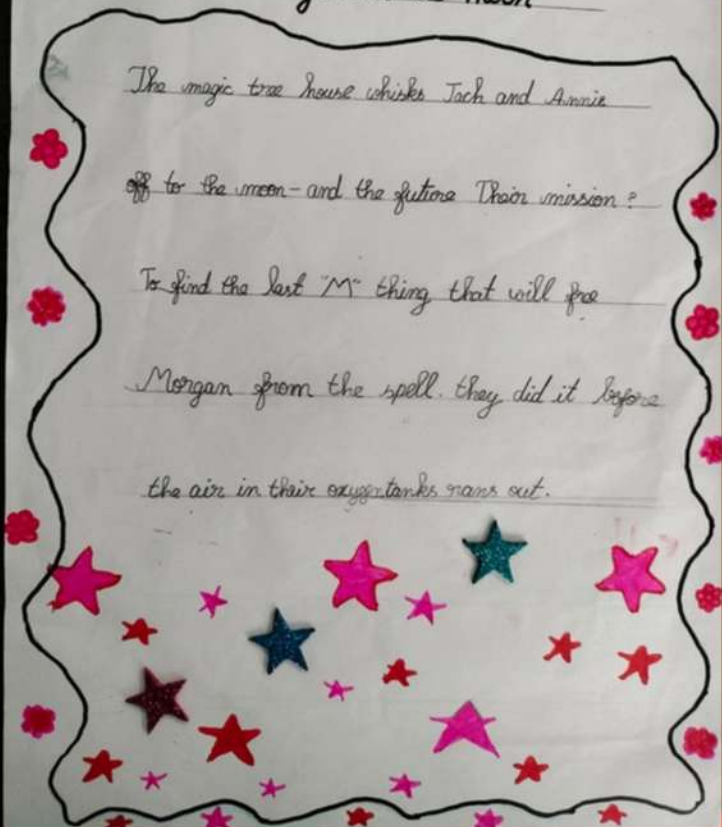 Moon
The magic tree house whisks Jack and Annie
off to the moon - and the future Their mission ?
To find the last "M" thing that will free
Morgan from the spell. they did it before
the air in their oxygen tanks rans out.